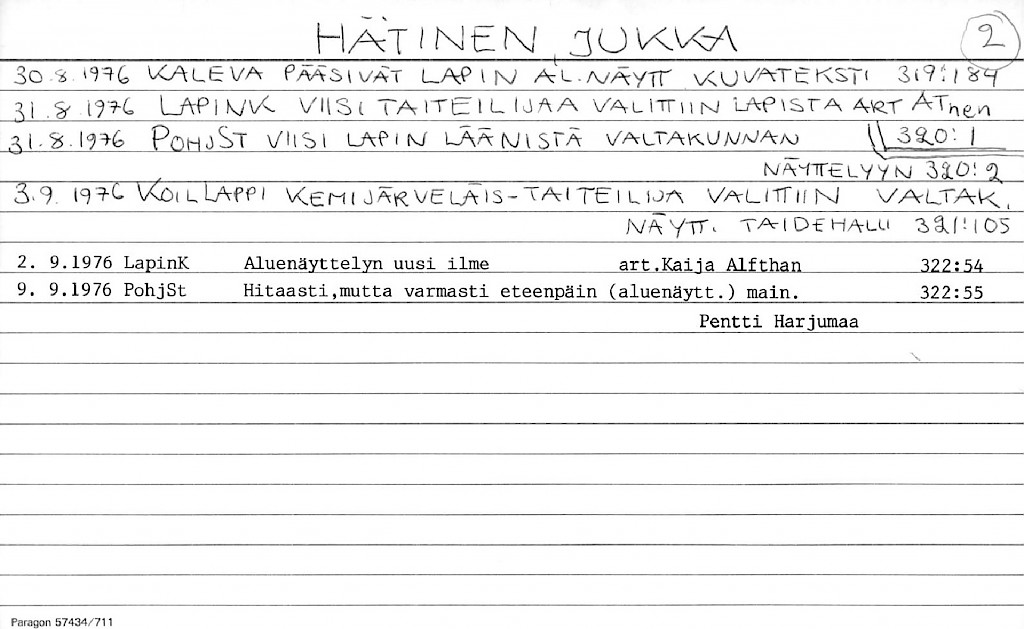 HÄTINEN, JUKKA 2
30.8.1976 KALEVA PÄÄSIVÄT LAPIN AL.NÄYTT KUVATEKSTI 319:184
31.8.1976 LAPINK VIISI TAITEILIJAA VALITTIIN LAPISTA ART ATnen
320:1
31.8.1976 POHJST VIISI LAPIN LÄÄNISTÄ VALTAKUNNAN
NÄYTTELYYN 320:2
3.9.1976 KOILLAPPI KEMIJÄRVELÄIS-TAITEILIJA VALITTIIN VALTAK.
NÄYTT. TAIDEHALLI 321:105
2. 9.1976 LapinK Aluenäyttelyn uusi ilme art.Kaija Alfthan 322:54
9. 9.1976 PohjSt Hitaasti,mutta varmasti eteenpäin (aluenäytt.) main. 322:55
Pentti Harjumaa
Paragon 57434/711